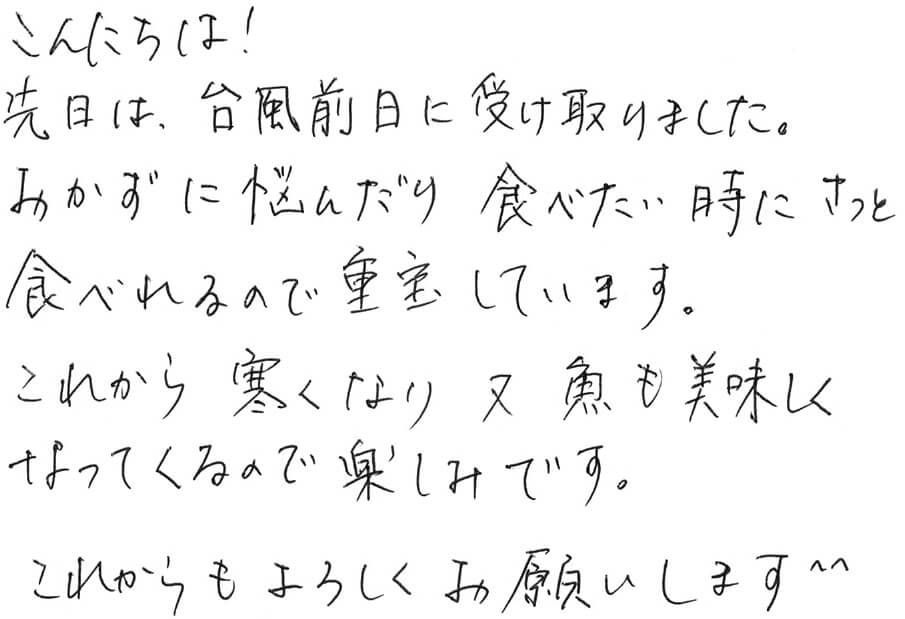 こんにちは!
先日は、台風前日に受け取りました。
おかずに悩んだり 食べたい時に さっと
食べれるので重宝しています。
これから 寒くなり 又 魚も美味しく
なってくるので楽しみです。
これからも よろしく お願いします^^